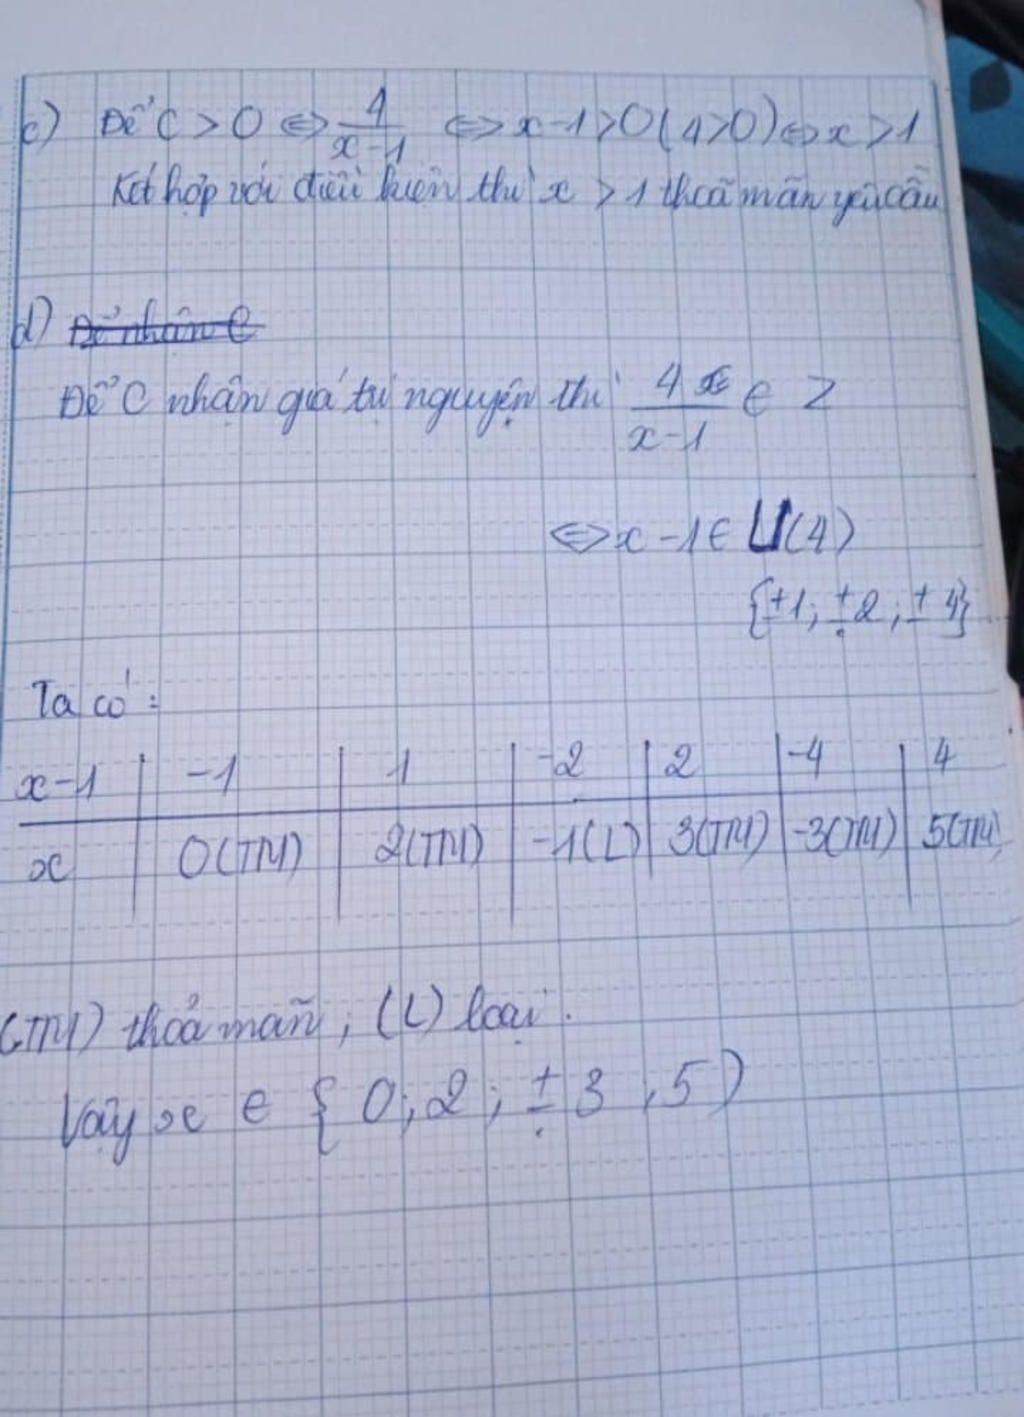 c) Để C > 0 ⇔ 4/(x-1) ⇔ x-1>0 (4>0) ⇔ x>1
Kết hợp với điều kiện thì x > 1 thoã mãn yêu cầu
d) Để nhân C
Để C nhận giá tri nguyện thì 4/(x-1) ∈ Z
⇔ x-1 ∈ Ư(4)
{±1; ±2; ±4}
Ta có:
x-1 | -1 | 1 | -2 | 2 | -4 | 4
x | 0(TM) | 2(TM) | -1(L) | 3(TM) | -3(TM) | 5(TM)
(TM) thoả mãn; (L) loại.
Vậy x ∈ {0; 2; ±3, 5)